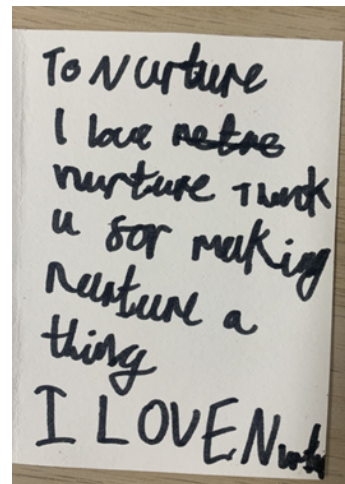 To Nurture
I love
nurture Thank
u for making
Nurture a
thing
I LOVE Nurtu